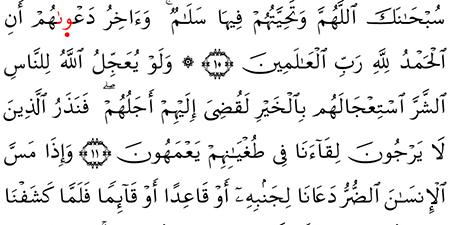 سُبْحَـٰنَكَ ٱللَّهُمَّ وَتَحِيَّتُهُمْ فِيهَا سَلَـٰمٌ ۚ وَءَاخِرُ دَعْوَىٰهُمْ أَنِ
ٱلْحَمْدُ لِلَّهِ رَبِّ ٱلْعَـٰلَمِينَ ﴿١٠﴾ ۞ وَلَوْ يُعَجِّلُ ٱللَّهُ لِلنَّاسِ
ٱلشَّرَّ ٱسْتِعْجَالَهُم بِٱلْخَيْرِ لَقُضِىَ إِلَيْهِمْ أَجَلُهُمْ ۖ فَنَذَرُ ٱلَّذِينَ
لَا يَرْجُونَ لِقَآءَنَا فِى طُغْيَـٰنِهِمْ يَعْمَهُونَ ﴿١١﴾ وَإِذَا مَسَّ
ٱلْإِنسَـٰنَ ٱلضُّرُّ دَعَانَا لِجَنۢبِهِۦٓ أَوْ قَاعِدًا أَوْ قَآئِمًا فَلَمَّا كَشَفْنَا